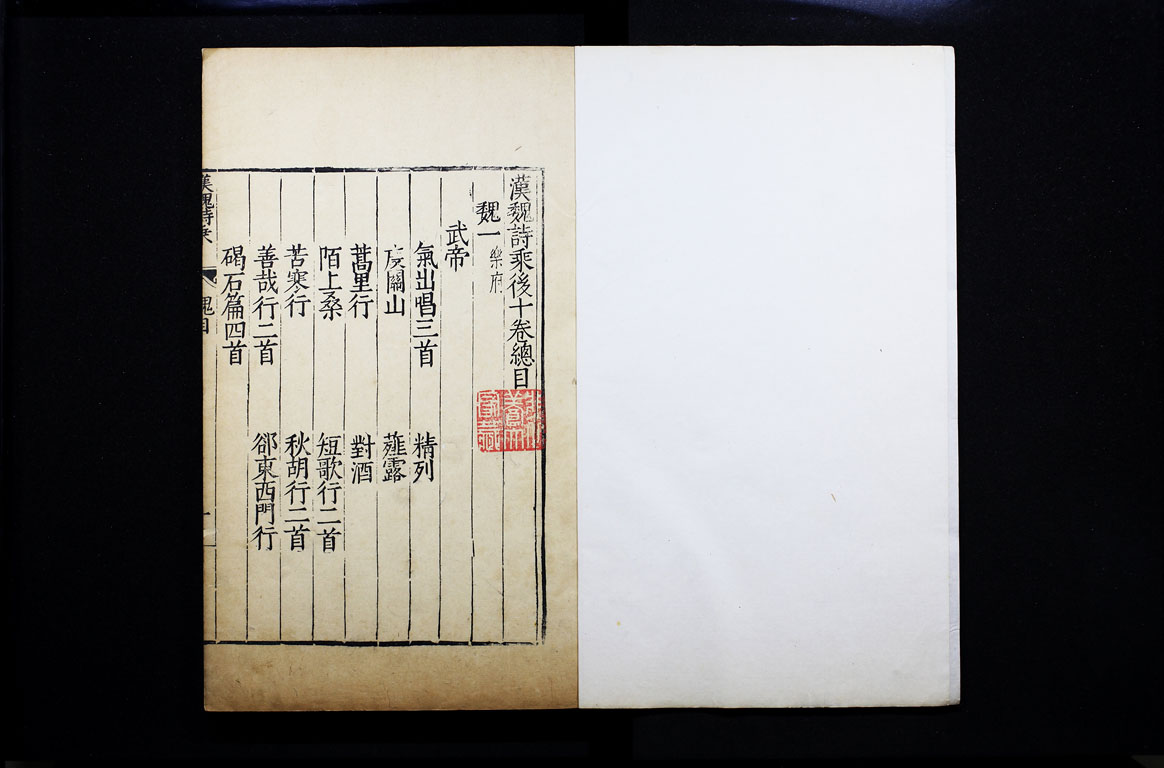 漢魏詩乘後十卷總目
魏一 樂府
武帝
氣出唱三首 精列
度關山 薤露
蒿里行 對酒
陌上桑 短歌行二首
苦寒行 秋胡行二首
善哉行二首 郤東西門行
碣石篇四首
漢魏詩乘 魏目 一